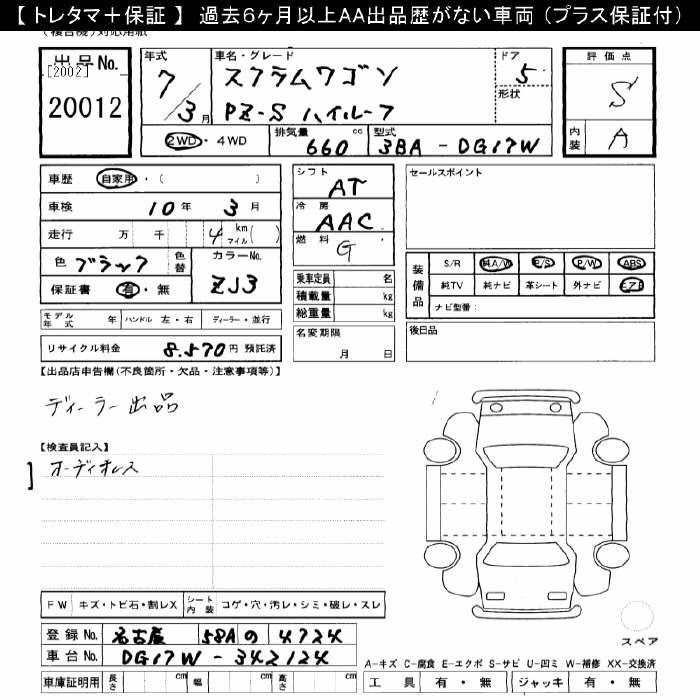 【 トレタマ＋保証 】 過去６ヶ月以上AA出品歴がない車両（プラス保証付）
(複合機)対応用紙
出品No. [2002] 20012
年式 7/3月 車名・グレード スクラムワゴン PZ-S ハイルーフ ドア 5 形状
評価点 S 内装 A
2WD・4WD 排気量 660 cc 型式 3BA - DG17W
車歴 自家用・( )
車検 10年 3月
走行 万 千 4 km マイル( )
色 ブラック 色替 カラーNo. ZJ3
保証書 有・無
シフト AT
冷房 AAC
燃料 G
乗車定員 名
積載量 kg
総重量 kg
セールスポイント
装備品 S/R 純A/W P/S P/W ABS
純TV 純ナビ 革シート 外ナビ エアB
ナビ型番:
モデル年式 年 ハンドル 左・右 ディーラー・並行
名変期限 月 日
後日品
リサイクル料金 8.570円 預託済
【出品店申告欄(不良箇所・欠品・注意事項等)】
ディーラー出品
【検査員記入】
オーディオレス
FW キズ・トビ石・割レX シート内装 コゲ・穴・汚レ・シミ・破レ・スレ
登録No. 名古屋 58A の 4724
車台No. DG17W - 342124
車庫証明用 長さ cm 幅 cm 高さ cm
スペア
A-キズ C-腐食 E-エクボ S-サビ U-凹ミ W-補修 XX-交換済
工具 有・無 ジャッキ 有・無